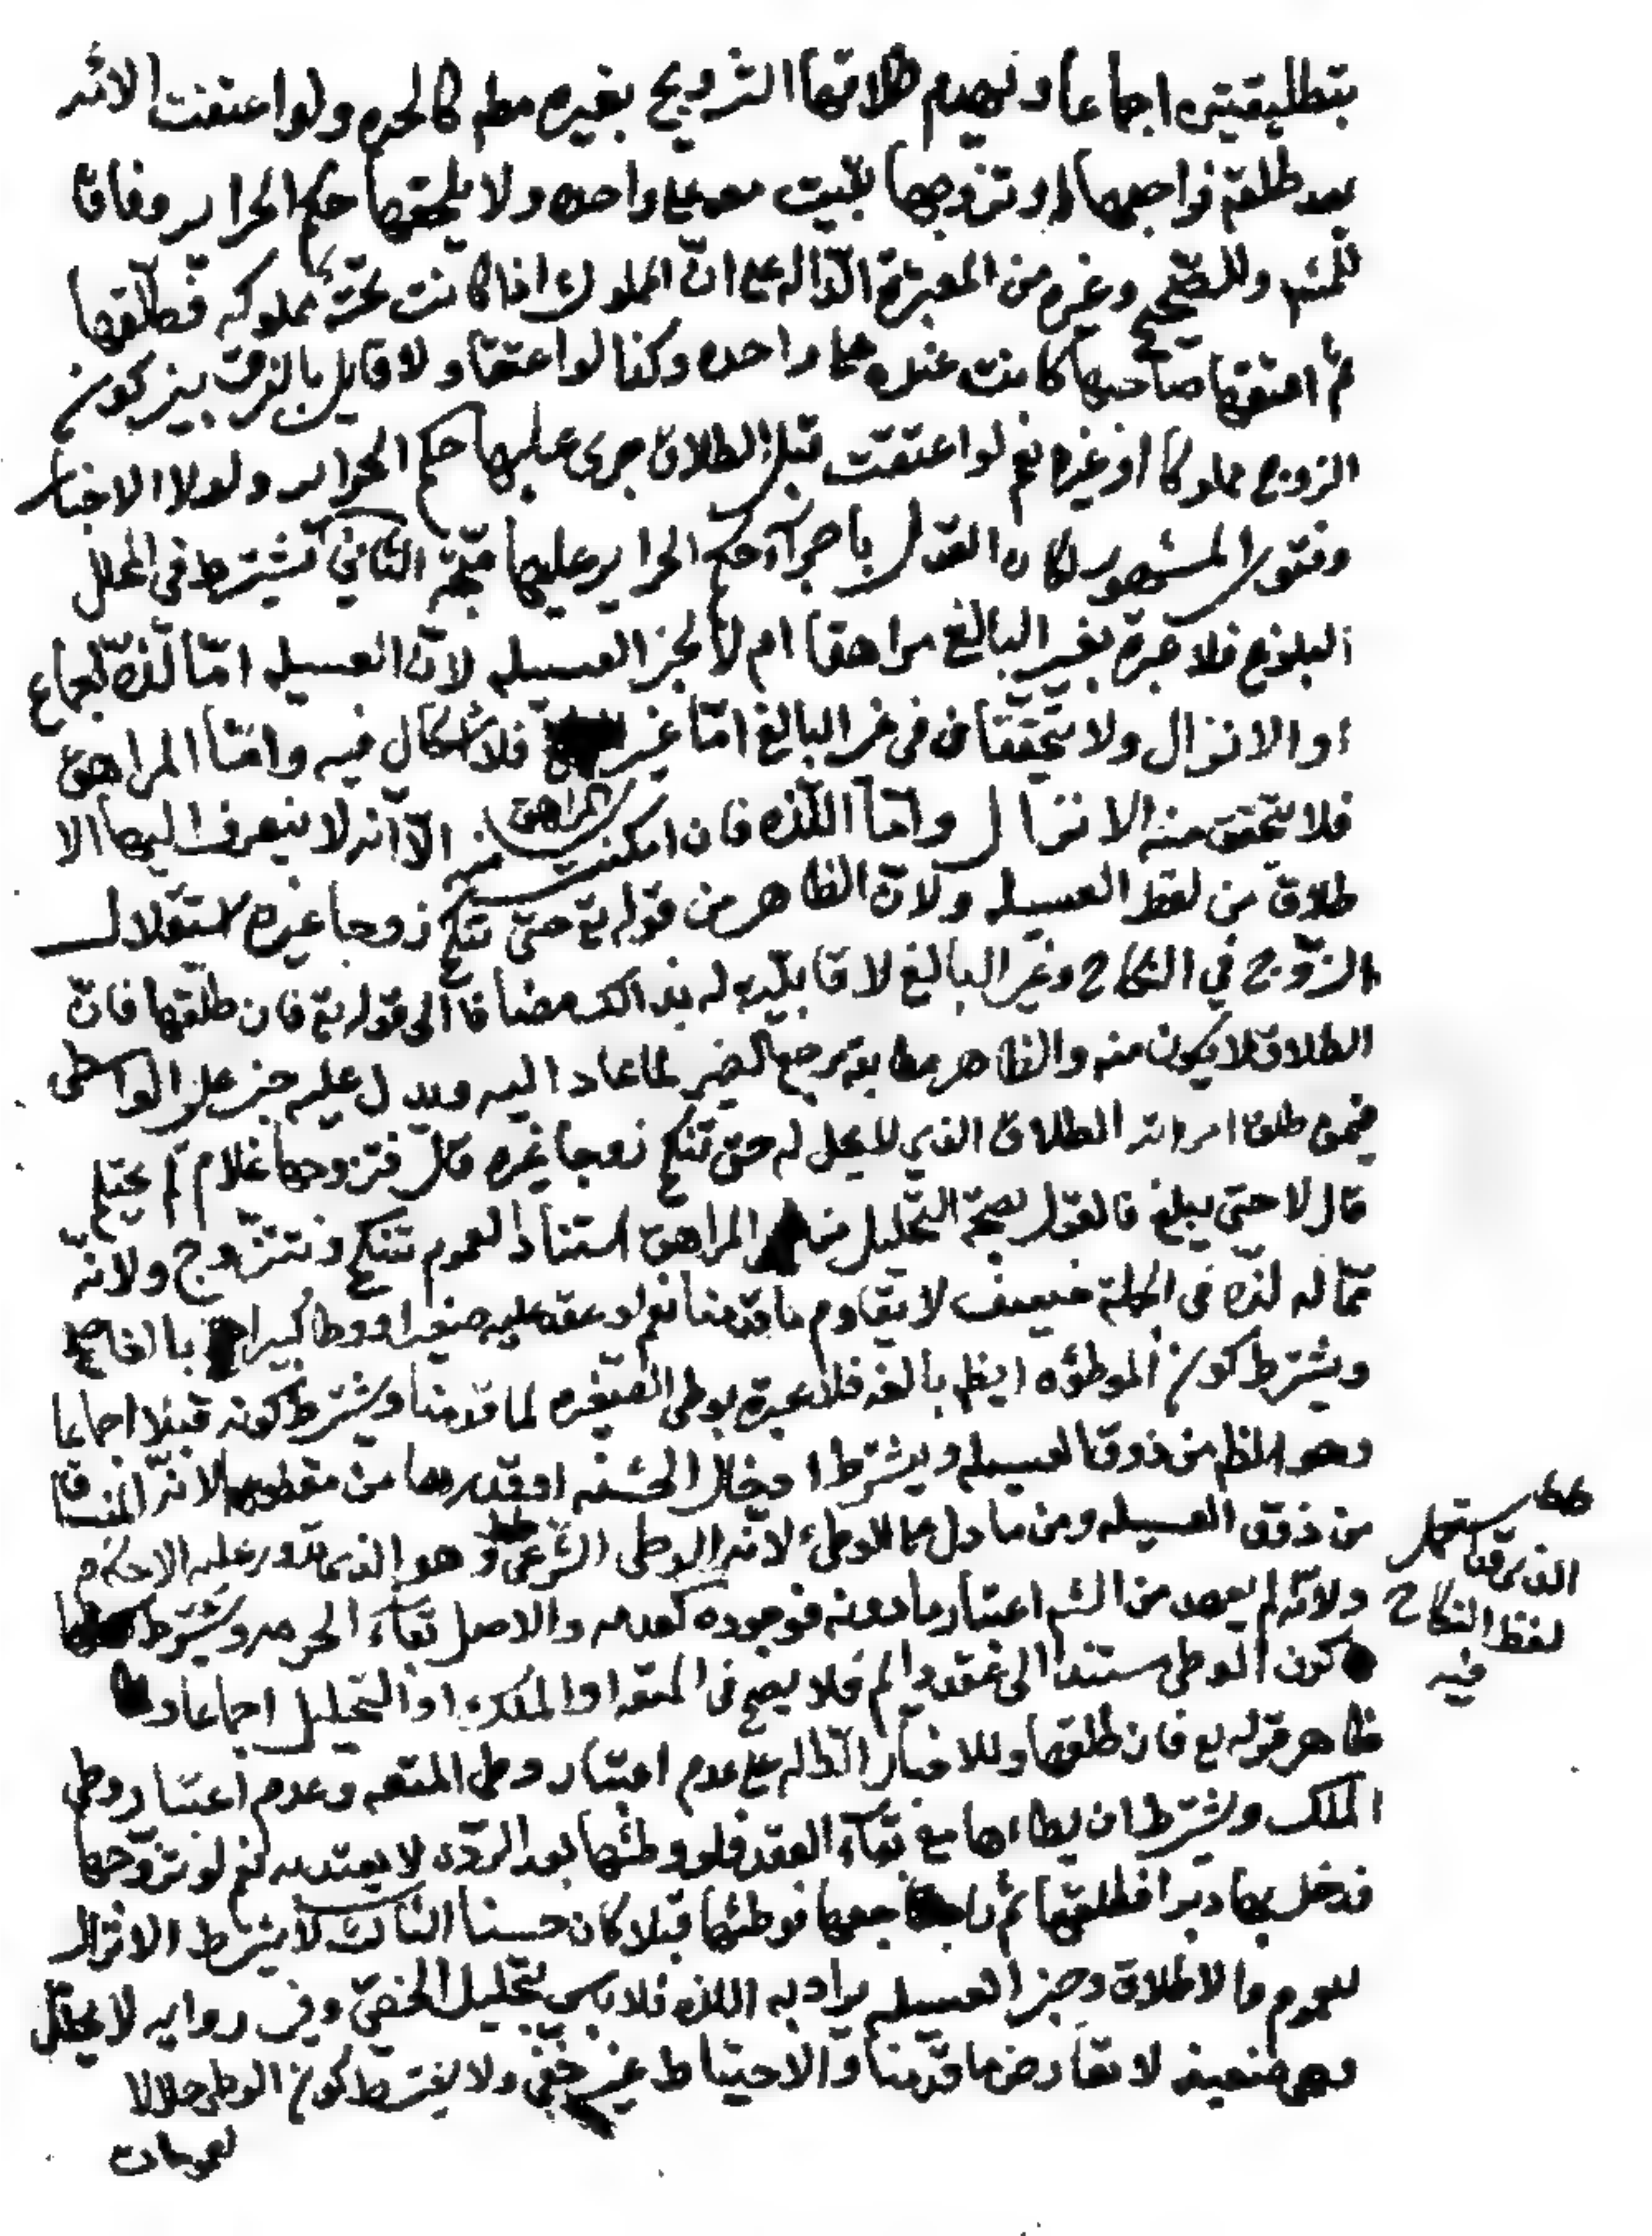 بتطليقتين اجماعا ويهدم طلاقها التزويج بغيره مطم كالحره ولو اعتقت الامة
بعد طلقة فراجعها او تزوجها بقيت معه على واحده ولا يلحقها حكم الحراير وفاقا
للمشهور وللصحيح وغيره من المعتبرة الدّالة على انّ المملوك اذا كانت تحته مملوكه فطلّقها
ثم اعتقها صاحبها كانت عنده على واحده وكذا لو اعتقا ولا قايل بالفرق بين كون
الزوج مملوكا او غيره نعم لو اعتقت قبل الطلاق جرى عليها حكم الحراير ولولا الاخبار
وفتوى المشهور لكان القول باجراء حكم الحراير عليها متّجه الثاني يشترط في المحلل
البلوغ فلا عبرة بغير البالغ مراهقا ام لا لخبر العسيله لانّ العسيله امّا لذّة الجماع
او الانزال ولا يتحققان في غير البالغ امّا غير المراهق فلا اشكال فيه وامّا المراهق
فلا يتحقق منه الانزال وامّا اللذّه فان امكنت منه الّا انه لا ينصرف اليها الا
طلاق من لفظ العسيله ولانّ الظاهر من قوله تع حتى تنكح زوجا غيره استقلال
الزّوج في النكاح وغير البالغ لا قابليّه له بذالك مضافا الى قوله تع فان طلّقها فانّ
الطلاق لا يكون منه والظاهر مطابقة مرجع الضمير لما عاد اليه ويدل عليه خبر علي الواسطي
فيمن طلق امراته الطلاق الذي لا يحل له حتى تنكح زوجا غيره قال فتزوجها غلام لم يحتلم
قال لا حتى يبلغ فالقول بصحّة التحليل من المراهق استنادا لعموم تنكح وتتزوج ولانّه
ممّا له لذّه في الجملة ضعيف لا يقاوم ما قدمنا نعم لو عقد عليه صغيرا ووطأ كبيرا بالغا صح
ويشترط كون الموطؤه ايظم بالغه فلا عبرة بوطى الصغيره لما قدمنا ويشترط كونه قبلا اجماعا
وهو الظم من ذوق العسيله ويشترط ادخال الحشفه او قدرها من مقطوعها لانّه المنساق
من ذوق العسيله ومن ما دل على الوطئ لانّه الوطى الشّرعي وهو الذي تدور عليه الاحكام
ولانّه لم يعهد من الشم اعتبار ما دونه فوجوده كعدمه والاصل بقاء الحرمه ويشترط
كون الوطى مستندا الى عقد دايم فلا يصح في المتعه او الملك او التحليل اجماعا و
ظاهر قوله تع فان طلقها وللاخبار الدّاله على عدم اعتبار وطى المتعه وعدم اعتبار وطى
الملك ويشترط ان يطاءها مع بقاء العقد فلو وطئها بعد الردّه لا يعتد به نعم لو تزوّجها
فدخل بها دبرا فطلقها ثم راجعها فوطئها قبلا كان حسنا الثالث لا يشترط الانزال
للعموم والاطلاق وخبر العسيله يراد به اللذه فلا باس بتحليل الخصيّ وفي روايه لا يحلّل
وهي ضعيفه لا تعارض ما قدمنا والاحتياط غير خفي ولا يشترط كون الوطى حلالا
لعمومات
استعمل
الذي قد
لفظ النكاح
فيه